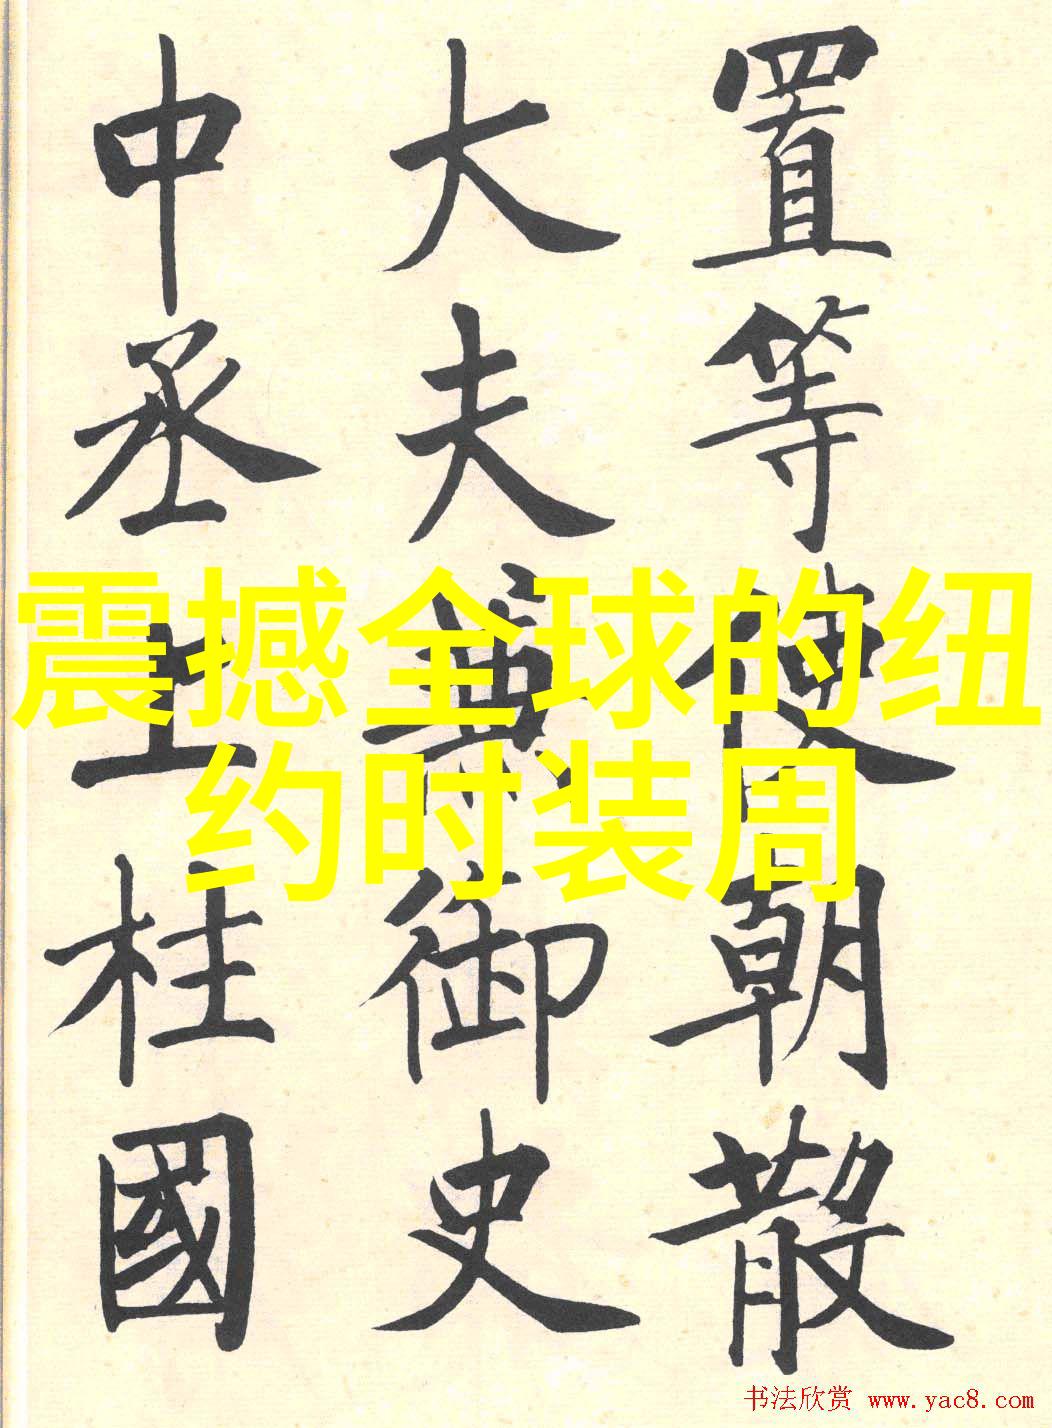 置等使朝散
大夫兼御史
中丞上柱國
震撼全球的纽
约时装周
书法欣赏 www.yac8.com